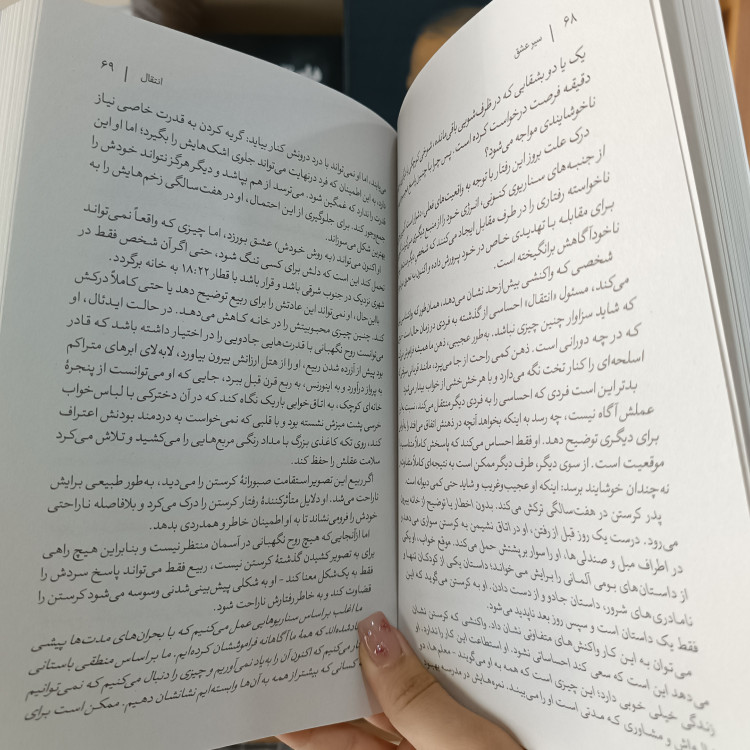 ۶۸ | سیر عشق
یک یا دو بشقابی که در ظرف‌شویی باقی مانده، شویی کوچکی
دقیقه فرصت درخواست کرده است، پس چرا با چنین
ناخوشایندی مواجه می‌شود؟
درک علت بروز این رفتار با توجه به واقعیت‌های فعلی
از جنبه‌های سناریوی کنونی، انرژی خود را از
ناخواسته رفتاری را در طرف مقابل ایجاد می‌کنند که
برای مقابله با تهدیدی خاص در خود پرورش داده و اکنون به
ناخودآگاهش برانگیخته است.
شخصی که واکنشی بیش‌ازحد نشان می‌دهد، همان‌طور که
می‌کند، مسئول «انتقال» احساسی از گذشته به فردی در زمان حال است
که شاید سزاوار چنین چیزی نباشد. به‌طور عجیبی، ذهن ما همیشه
که در چه دورانی است. ذهن کمی راحت از جا می‌پرد، مانند قربانی
اسلحه‌ای را کنار تخت نگه می‌دارد و با هر خش‌خشی از خواب بیدار
بدتر این است فردی که احساسی را به فردی دیگر منتقل می‌کند، نسبت به
عملش آگاه نیست، چه رسد به اینکه بخواهد آنچه در ذهنش اتفاق می‌افتد را
برای دیگری توضیح دهد. او فقط احساس می‌کند که پاسخش کاملاً متناسب
موقعیت است. از سوی دیگر، طرف دیگر ممکن است به نتیجه‌ای کاملاً متفاوت
نه‌چندان خوشایند برسد: اینکه او عجیب‌وغریب و شاید حتی کمی دیوانه است
پدر کرستن در هفت‌سالگی ترکش می‌کند. بدون اخطار یا توضیح از خانه بیرون
می‌رود. درست یک روز قبل از رفتن، او در اتاق نشیمن به کرستن سواری می‌دهد و
در اطراف مبل و صندلی‌ها، او را سوار بر پشتش حمل می‌کند. موقع خواب، او یکی
از داستان‌های بومی آلمانی را برایش می‌خواند؛ داستان یکی از کودکان تنها و
نامادری‌های شرور، داستان جادو و از دست دادن. او به کرستن می‌گوید که این
فقط یک داستان است و سپس روز بعد ناپدید می‌شود.
می‌توان به این کار واکنش‌های متفاوتی نشان داد. واکنشی که کرستن نشان
می‌دهد این است که سعی کند احساساتی نشود. او استطاعت این کار را ندارد. او
زندگی خیلی خوبی دارد؛ این چیزی است که همه به او می‌گویند - معلم‌ها، دو
و مشاوری که مدتی است او را می‌بیند. نمره‌هایش در مدرسه
انتقال | ۶۹
می‌یابند، اما او نمی‌تواند با درد درونش کنار بیاید؛ گریه کردن به قدرت خاصی نیاز
دارد، به این اطمینان که فرد درنهایت می‌تواند جلوی اشک‌هایش را بگیرد؛ اما او این
قدرت را ندارد که غمگین شود. می‌ترسد از هم بپاشد و دیگر هرگز نتواند خودش را
جمع‌وجور کند. برای جلوگیری از این احتمال، او در هفت‌سالگی زخم‌هایش را به
بهترین شکل می‌سوزاند.
او اکنون می‌تواند (به روش خودش) عشق بورزد، اما چیزی که واقعاً نمی‌تواند
تحمل کند این است که دلش برای کسی تنگ شود، حتی اگر آن شخص فقط در
شهری نزدیک در جنوب شرقی باشد و قرار باشد با قطار ۱۸:۲۲ به خانه برگردد.
بااین‌حال، او نمی‌تواند این عادتش را برای ربیع توضیح دهد یا حتی کاملاً درکش
کند. چنین چیزی محبوبیتش را در خانه کاهش می‌دهد. در حالت ایدئال، او
می‌توانست روح نگهبانی با قدرت‌هایی جادویی را در اختیار داشته باشد که قادر
بود پیش از آزرده شدن ربیع، او را از هتل ارزانش بیرون بیاورد، لابه‌لای ابرهای متراکم
به پرواز درآورد و به اینورنس، به ربع قرن قبل ببرد، جایی که او می‌توانست از پنجرهٔ
خانه‌ای کوچک، به اتاق‌خوابی باریک نگاه کند که در آن دخترکی با لباس‌خواب
خرسی پشت میزش نشسته بود و با قلبی که نمی‌خواست به دردمند بودنش اعتراف
کند، روی تکه کاغذی بزرگ با مداد رنگی مربع‌هایی را می‌کشید و تلاش می‌کرد
سلامت عقلش را حفظ کند.
اگر ربیع این تصویر استقامت صبورانهٔ کرستن را می‌دید، به‌طور طبیعی برایش
ناراحت می‌شد. او دلایل متأثرکنندهٔ رفتار کرستن را درک می‌کرد و بلافاصله ناراحتی
خودش را فرومی‌نشاند تا به او اطمینان خاطر و همدردی بدهد.
اما ازآنجایی‌که هیچ روح نگهبانی در آسمان منتظر نیست و بنابراین هیچ راهی
برای به تصویر کشیدن گذشتهٔ کرستن نیست، ربیع فقط می‌تواند پاسخ سردش را
فقط به یک‌شکل معنا کند - او به شکلی پیش‌بینی‌شدنی وسوسه می‌شود کرستن را
قضاوت کند و به خاطر رفتارش ناراحت شود.
ما اغلب بر اساس سناریوهایی عمل می‌کنیم که با بحران‌های مدت‌ها پیشی
شده‌اند که همه ما آگاهانه فراموششان کرده‌ایم. ما بر اساس منطقی باستانی
می‌کنیم که اکنون آن را به یاد نمی‌آوریم و چیزی را دنبال می‌کنیم که نمی‌توانیم
کسانی که بیشتر از همه به آن‌ها وابسته‌ایم نشانشان دهیم. ممکن است برای